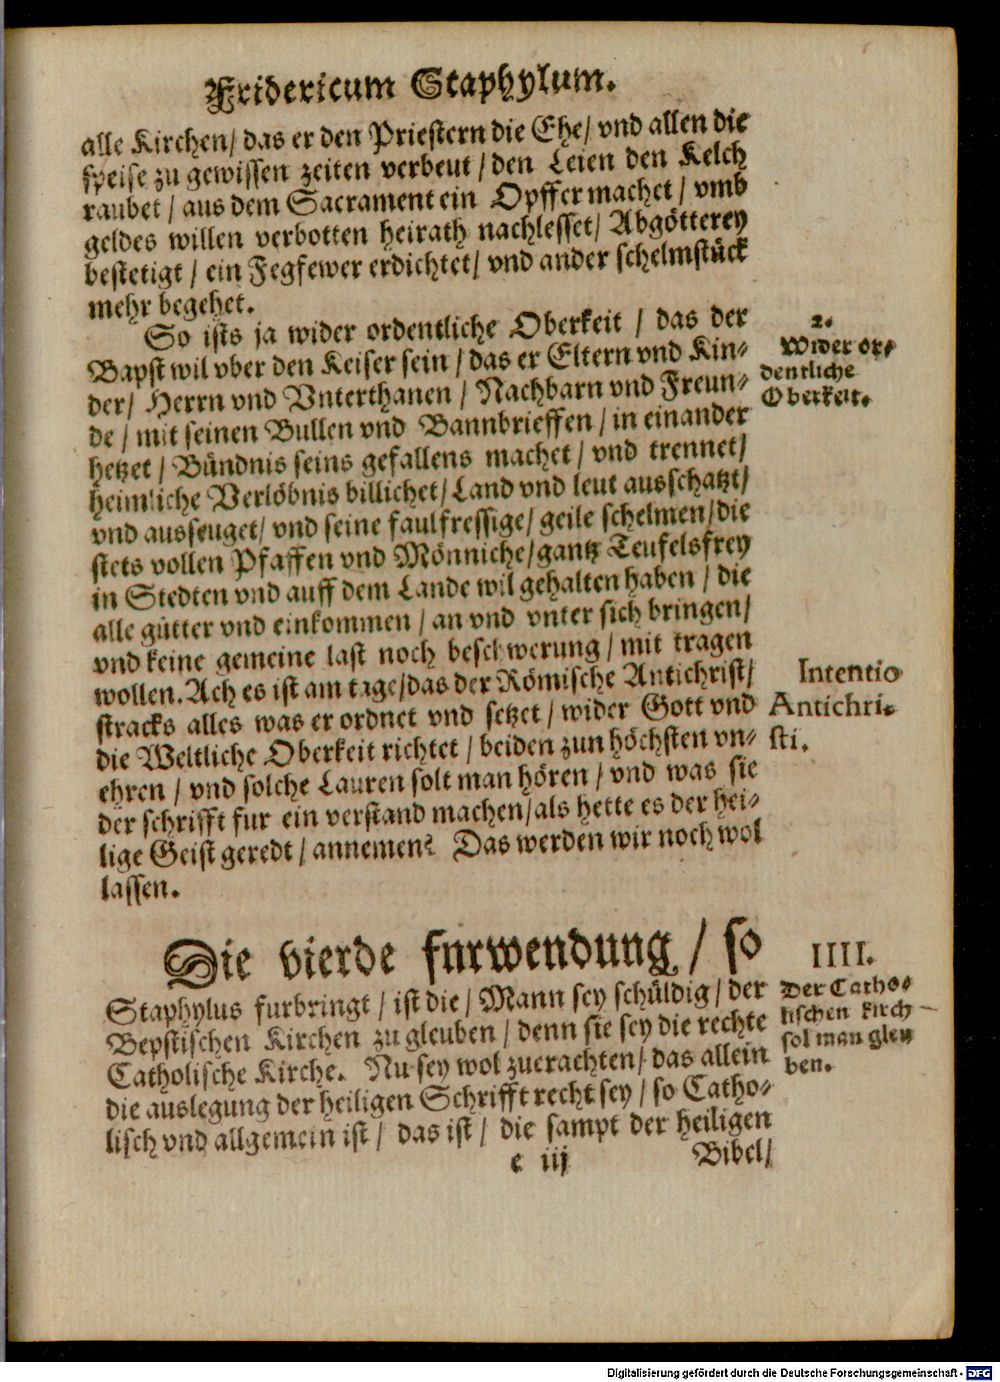 Fridericum Staphylum.
alle Kirchen/ das er den Priestern die Ehe/ vnd allen die
speise zu gewissen zeiten verbeut / den Leien den Kelch
raubet / aus dem Sacrament ein Opffer machet / vmb
geldes willen verbotten heirath nachlesset/ Abgötterey
bestetigt / ein Fegfewer erdichtet/ vnd ander schelmstück
mehr begehet.
So ists ja wider ordentliche Oberkeit / das der
Bapst wil vber den Keiser sein / das er Eltern vnd Kin-
der/ Herrn vnd Vnterthanen / Nachbarn vnd Freun-
de / mit seinen Bullen vnd Bannbrieffen / in einander
hetzet / Bündnis seins gefallens machet / vnd trennet/
heimliche Verlöbnis billichet/ Land vnd leut ausschatzt/
vnd ausseuget/ vnd seine faulfressige/ geile schelmen/die
stets vollen Pfaffen vnd Mönniche/gantz Teufelsfrey
in Stedten vnd auff dem Lande wil gehalten haben / die
alle gütter vnd einkommen / an vnd vnter sich bringen/
vnd keine gemeine last noch beschwerung / mit tragen
wollen. Ach es ist am tage/das der Römische Antichrist/
stracks alles was er ordnet vnd setzet / wider Gott vnd
die Weltliche Oberkeit richtet / beiden zun höchsten vn-
ehren / vnd solche Lauren solt man hören / vnd was sie
der schrifft fur ein verstand machen/als hette es der hei-
lige Geist geredt / annemen? Das werden wir noch wol
lassen.
2.
Wider or-
dentliche
Oberkeit.
Intentio
Antichri-
sti.
Die vierde furwendung / so
Staphylus furbringt / ist die / Mann sey schüldig / der
Bepstischen Kirchen zu gleuben / denn sie sey die rechte
Catholische Kirche. Nu sey wol zuerachten/ das allein
die auslegung der heiligen Schrifft recht sey / so Catho-
lisch vnd allgemein ist / das ist / die sampt der heiligen
IIII.
Der Catho-
lischen kirch
sol man gleu
ben.
e iij
Bibel/
Digitalisierung gefördert durch die Deutsche Forschungsgemeinschaft - DFG